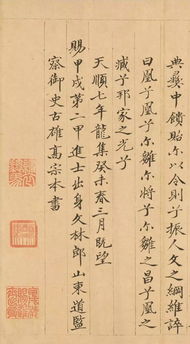 典彝申錫貽尔以令則兮振人文之綱維誶
曰鳳兮鳳兮尔雛尔將兮尔雛之昌兮鳳之
臧兮邦家之光兮
天順七年龍集癸未春三月既望
賜甲戌第二甲進士出身文林郎山東道監
察御史古雄高宗本書